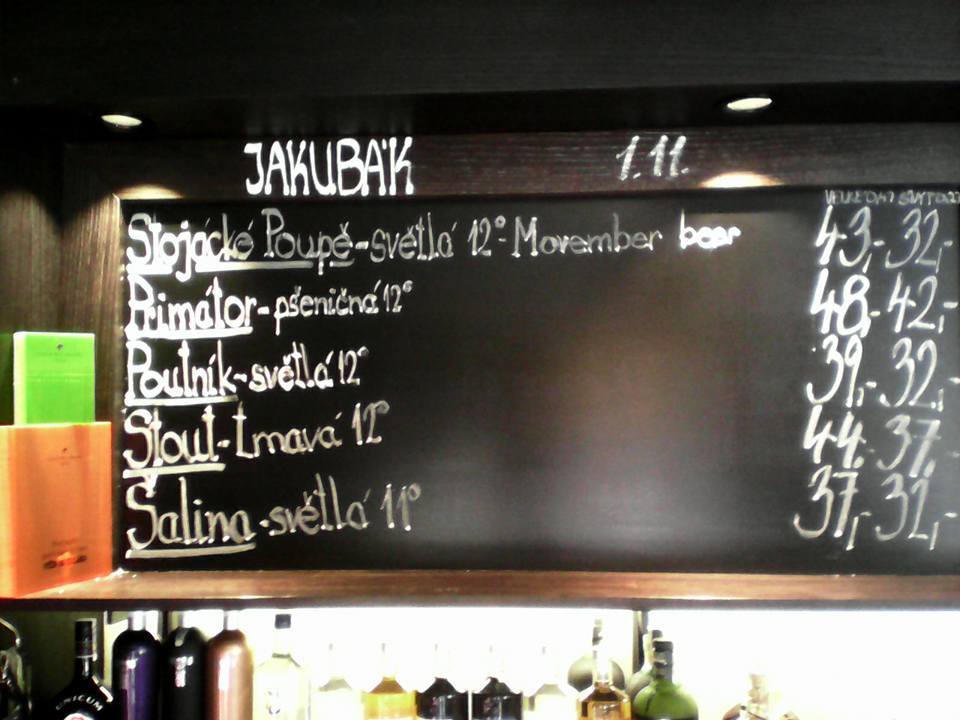 JAKUBÁK 1.11.
Stojácké Poupě-světlá 12° Movember beer 43,- 32,-
Primátor-pšeničná 12° 48,- 42,-
Poutník-světlá 12° 39,- 32,-
Stout-tmavá 12° 44,- 37,-
Šalina-světlá 11° 37,- 32,-
UNICUM